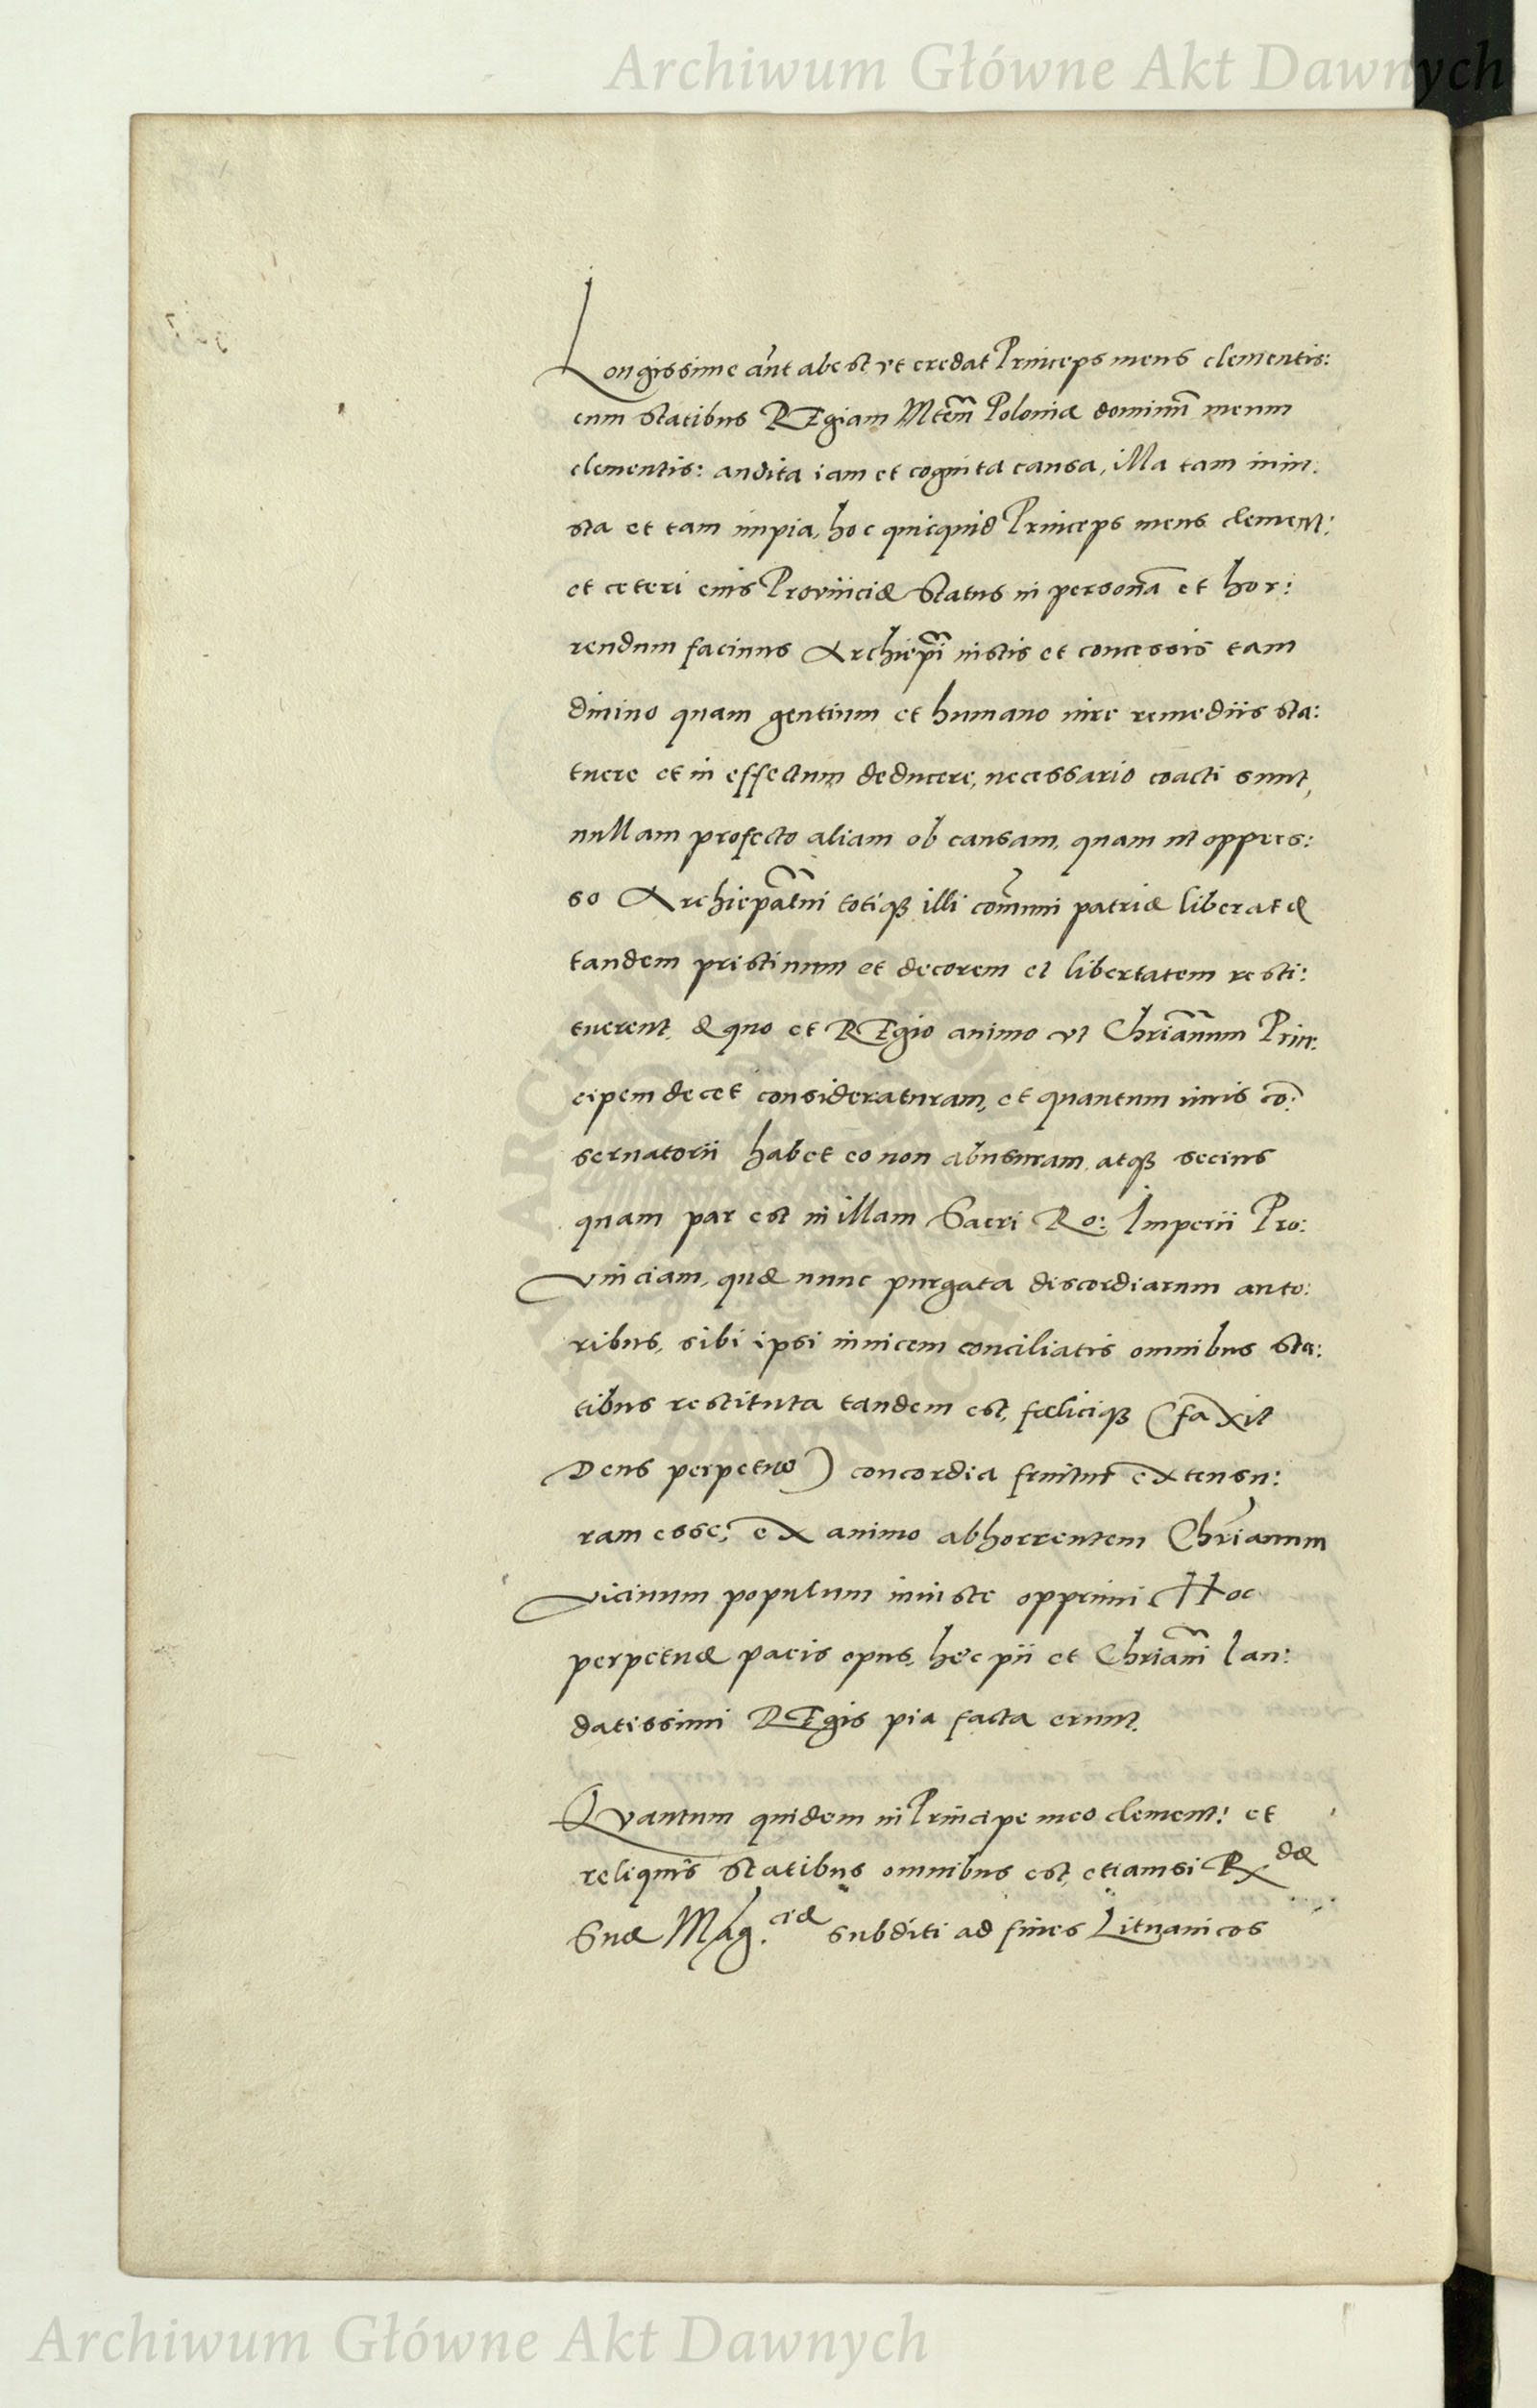 Archiwum Główne Akt Dawnych
Longissime aũt abest vt credat Princeps meus clementis:
cum statibus REgiam Mtẽm Poloniæ dominũ meum
clementis: audita iam et cognita causa, illa tam iniu:
sta et tam impia, hoc quicquid Princeps meus clement:
et ceteri eius Provinciæ Status in personã et hor:
rendum facinus Archiepĩ iustis et concessis tam
diuino quam gentium et humano iure remediis sta:
tuere et in effectum deducere, necessario coacti sunt,
nullam profecto aliam ob causam, quam vt oppres:
so Archiepãtui totiqꝫ illi cõmuni patriæ liberatæ
tandem pristinum et decorem et libertatem resti:
tuerent, æquo et REgio animo vt Chriãnum Prin:
cipem decet consideraturam, et quantum iuris cõ:
seruatorii habet eo non abusuram, atqꝫ secius
quam par est in illam Sacri Ro: Imperii Pro:
vinciam, quæ nunc purgata discordiarum auto:
ribus, sibi ipsi inuicem conciliatis omnibus sta:
tibus restituta tandem est, fœliciqꝫ (faxit
Deus perpetuo) concordia fruitur extensu:
ram esse; ex animo abhorrentem Chriãnum
vicinum populum iniuste opprimi. Hoc
perpetuæ pacis opus, hec pii et Chriãni lau:
datissimi REgis pia facta erunt.
Quantum quidem in Principe meo clement: et
reliquis Statibus omnibus est, etiamsi Rdæ
Suæ Mag.ciæ subditi ad fines Lituanicos
Archiwum Główne Akt Dawnych